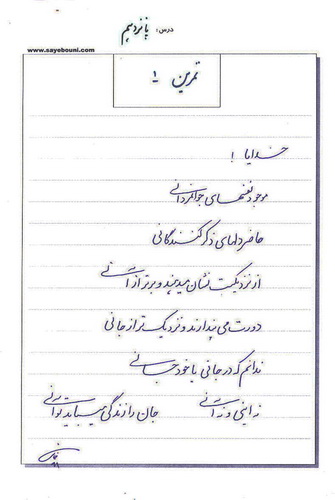 درس: پانزدهم
www.sayebouni.com
تمرین ۱
خدایا !
موجود نفسهای جوانمردانی
حاضر دلهای ذکر کنندگانی
از نزدیکت نشان میدهند و برتر از آنی
دورت می پندارند و نزدیک تر از جانی
ندانم که در جانی یا خود جانی
نه اینی و نه آنی جان را زندگی میباید تو آنی